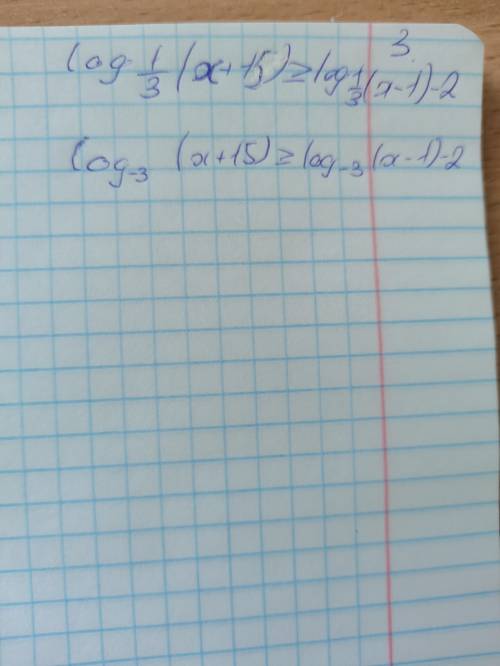 3.
log 1/3 (x+15) ≥ log 1/3 (x-1)-2
log -3 (x+15) ≥ log -3 (x-1)-2